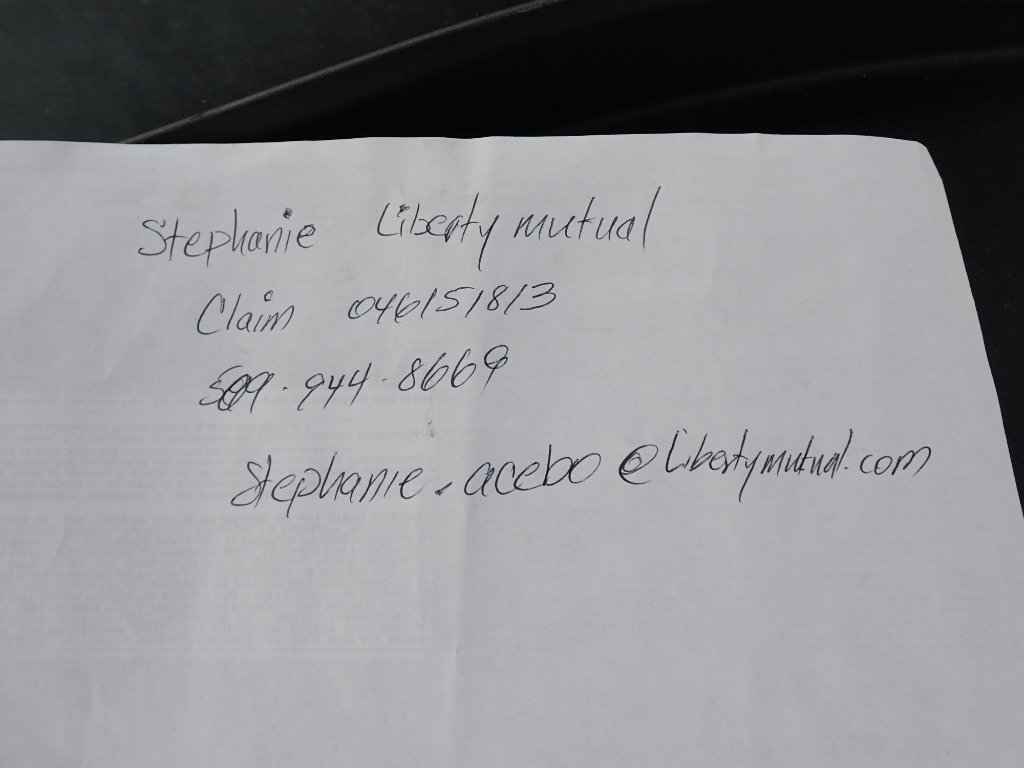 Stephanie Liberty mutual
Claim 046151813
509.944.8669
Stephanie.acebo@Libertymutual.com